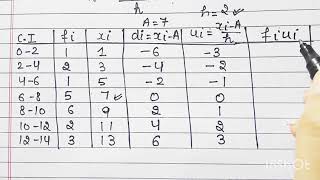 h
h=2
A=7
C.I fi xi di=xi-A ui=xi-A/h fiui
0-2 1 1 -6 -3
2-4 2 3 -4 -2
4-6 1 5 -2 -1
6-8 5 7 0 0
8-10 6 9 2 1
10-12 2 11 4 2
12-14 3 13 6 3